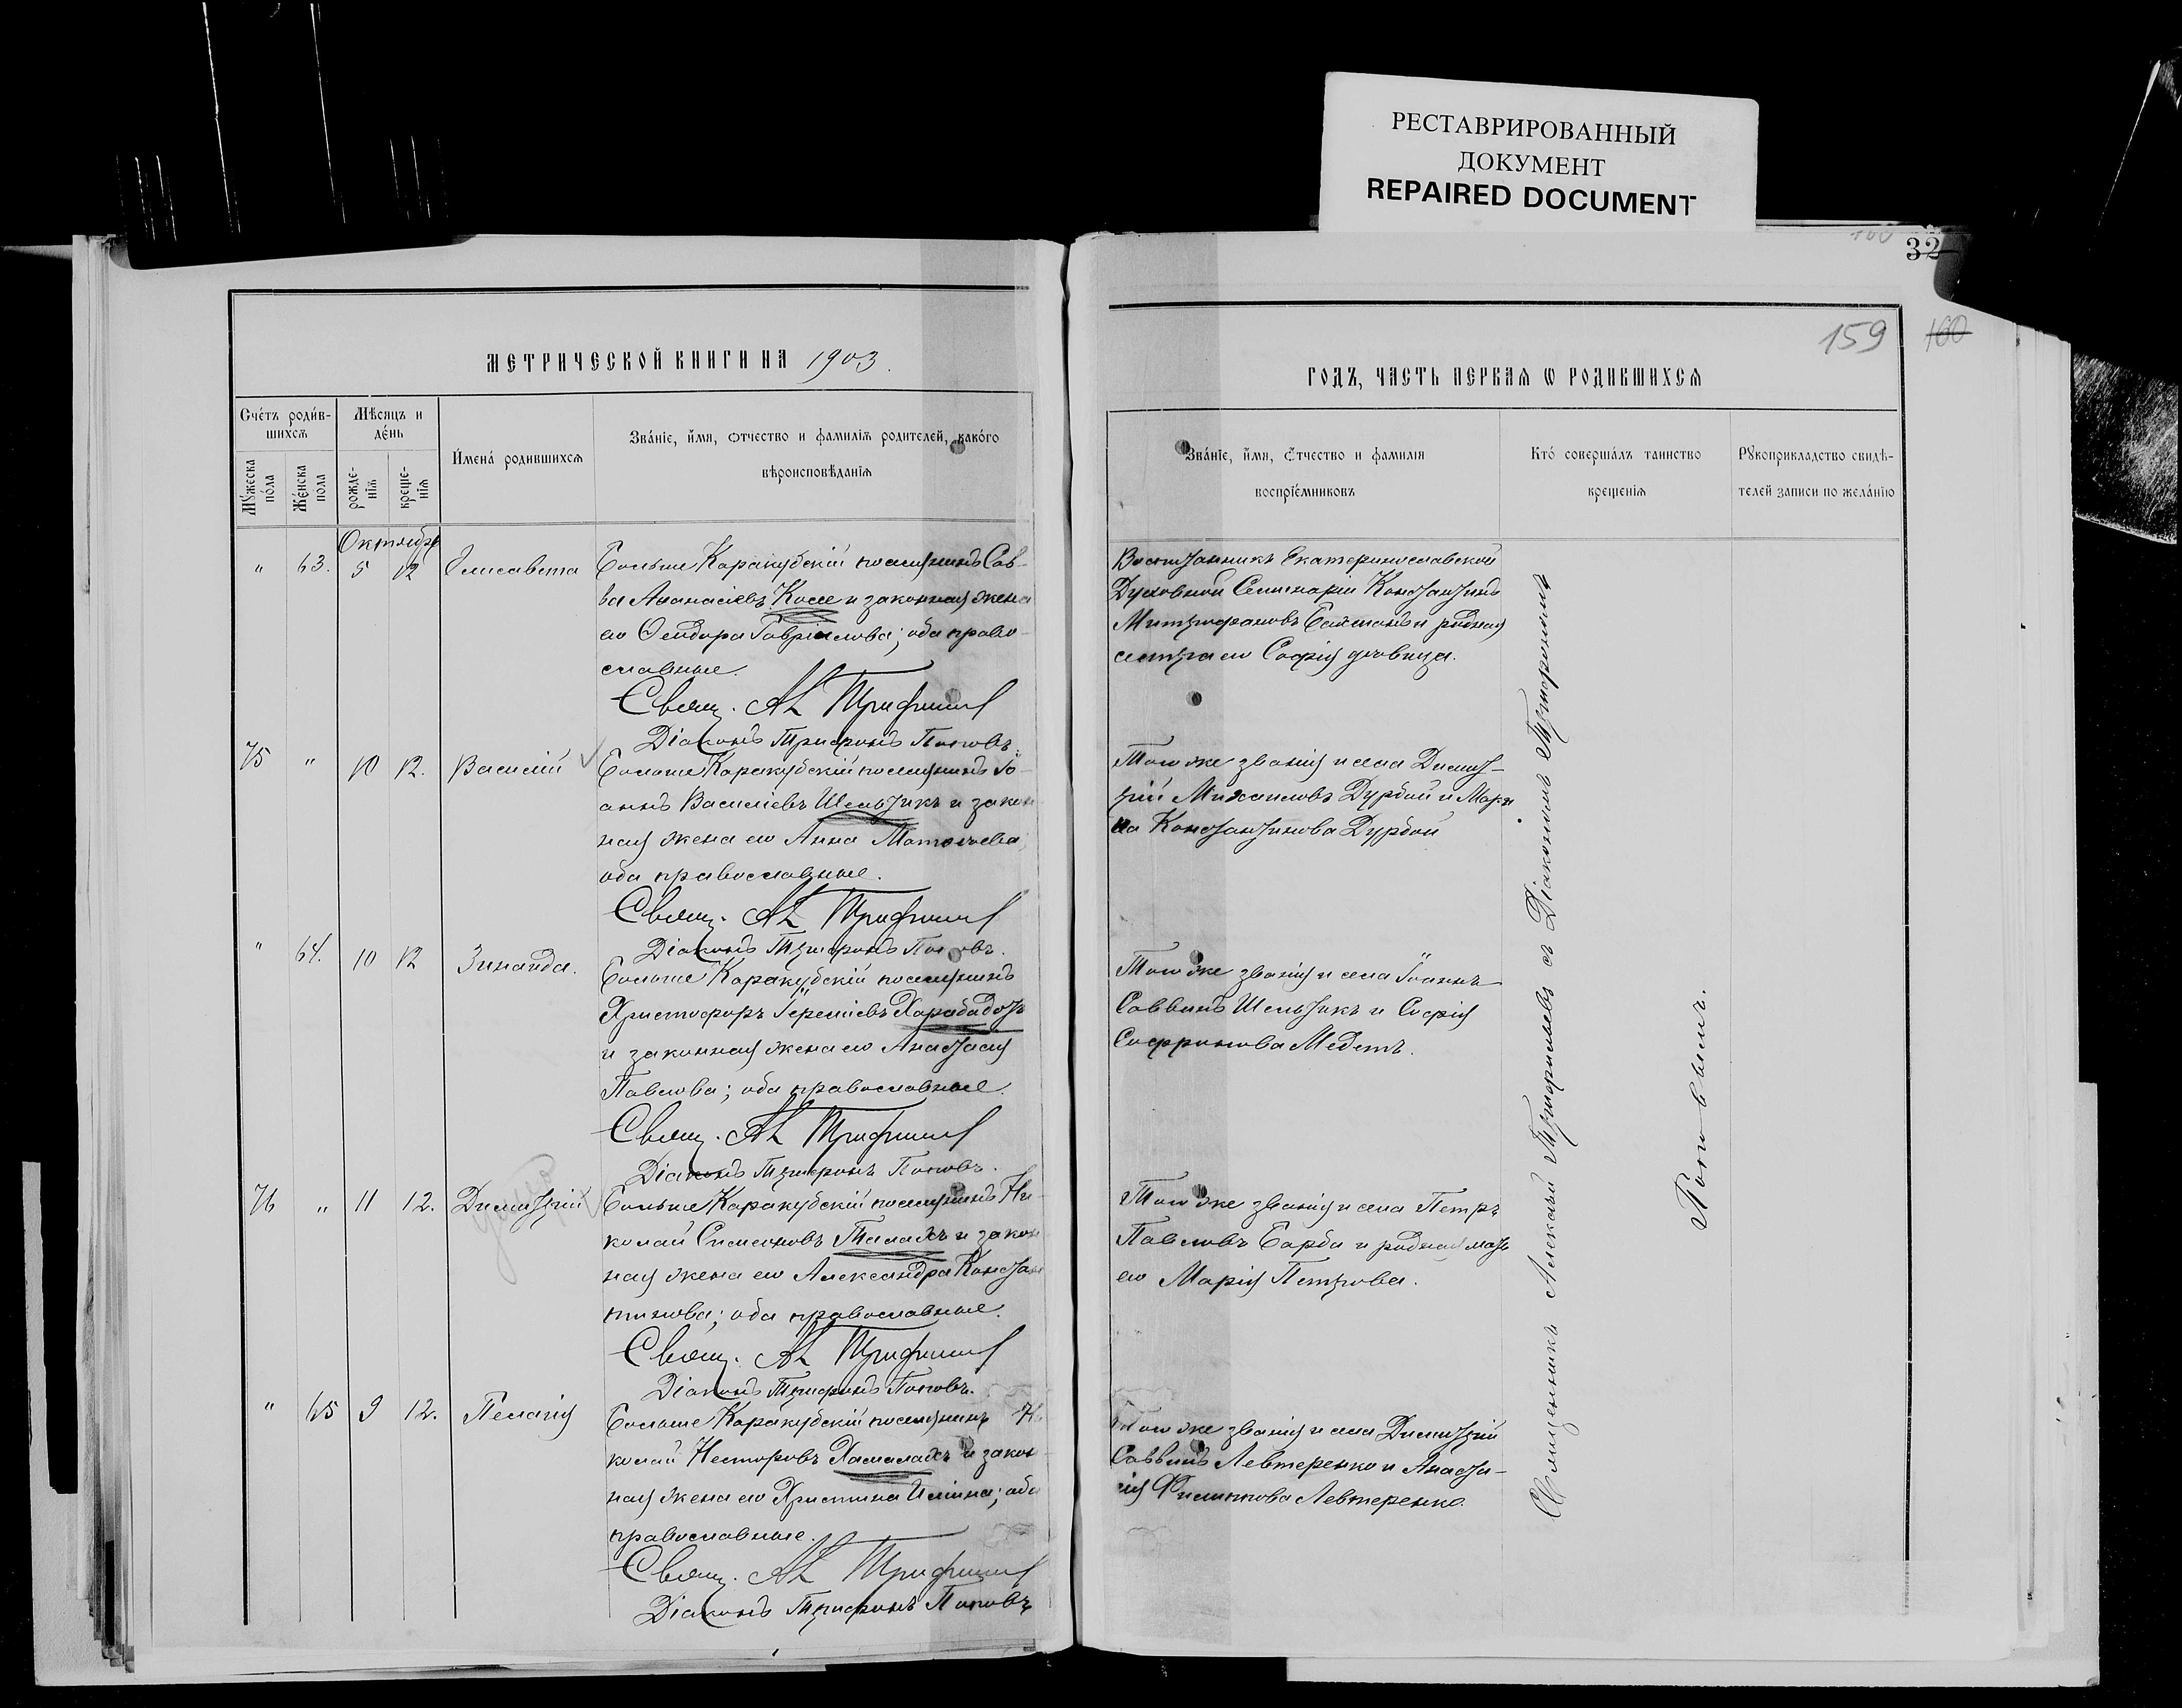 РЕСТАВРИРОВАННЫЙ
ДОКУМЕНТ
REPAIRED DOCUMENT
32
159
100
МЕТРИЧЕСКОЙ КНИГИ НА 1903.
ГОДЪ, ЧАСТЬ ПЕРВАЯ Ѡ РОДИВШИХСѦ
Сче́тъ роди́в-
шихсѧ
Мѣ́сяцъ и
де́нь
Мꙋ́жеска
по́ла
Же́нска
пола
рожде-
нїѧ
креще-
нїѧ
И́мена́ родившихсѧ
Зва́нїе, и́мя, ѻтчество и фамилїѧ родителей, како́го
вѣроисповѣ́данїѧ
Зва́нїе, и́мя, ѻ́тчество и фамилїя
воспрїе́мниковъ
Кто́ соверша́лъ таинство
крещенїѧ
Рꙋкоприкладство свидѣ-
телей записи по жела́нїю
Октябрь
" 63. 5 12 Елисавета
Больше Каракубскій поселянинъ Сав-
ва Аѳанасіевъ Коссе и законная жена
его Ѳеодора Гавріилова; оба право-
славные.
Свящ. Ал. Трифилл
Діаконъ Трифонъ Поповъ.
Воспитанникъ Екатеринославской
Духовной Семинаріи Константинъ
Митрофановъ и родная
сестра его Софія дѣвица.
75 " 10 12. Василій
Больше Каракубскій поселянинъ Іо-
аннъ Василіевъ Шельтикъ и закон
ная жена его Анна Матѳеева
оба православные.
Свящ. Ал. Трифилл
Діаконъ Трифонъ Поповъ.
Того же званія и села Димит-
рій Михаиловъ Дурбой и Мари
на Константинова Дурбой
" 64. 10 12 Зинаида.
Больше Каракубскій поселянинъ
Христофоръ Іереміевъ Харабадотъ
и законная жена его Анастасія
Павлова; оба православные.
Свящ. Ал. Трифилл
Діаконъ Трифонъ Поповъ.
Того же званія и села Іоаннъ
Саввинъ Шельтикъ и Софія
Софронова Медетъ.
76 " 11 12. Димитрій
Больше Каракубскій поселянинъ Ни-
колай Симеоновъ Талахъ и закон
ная жена его Александра Констан
тинова; оба православные.
Свящ. Ал. Трифилл
Діаконъ Трифонъ Поповъ.
Того же званія и села Петръ
Павловъ Барба и родная мать
его Марія Петрова.
" 65 9 12. Пелагія
Больше Каракубскій поселянинъ Ни
колай Несторовъ Хамалахъ и закон
ная жена его Христина Иліина; оба
православные.
Свящ. Ал. Трифилл
Діаконъ Трифонъ Поповъ
Того же званія и села Димитрій
Саввинъ Левтеренко и Анаста-
сія Филиппова Левтеренко.
Священникъ Алексай Трифильевъ съ Діакономъ Трифономъ
Поповымъ.